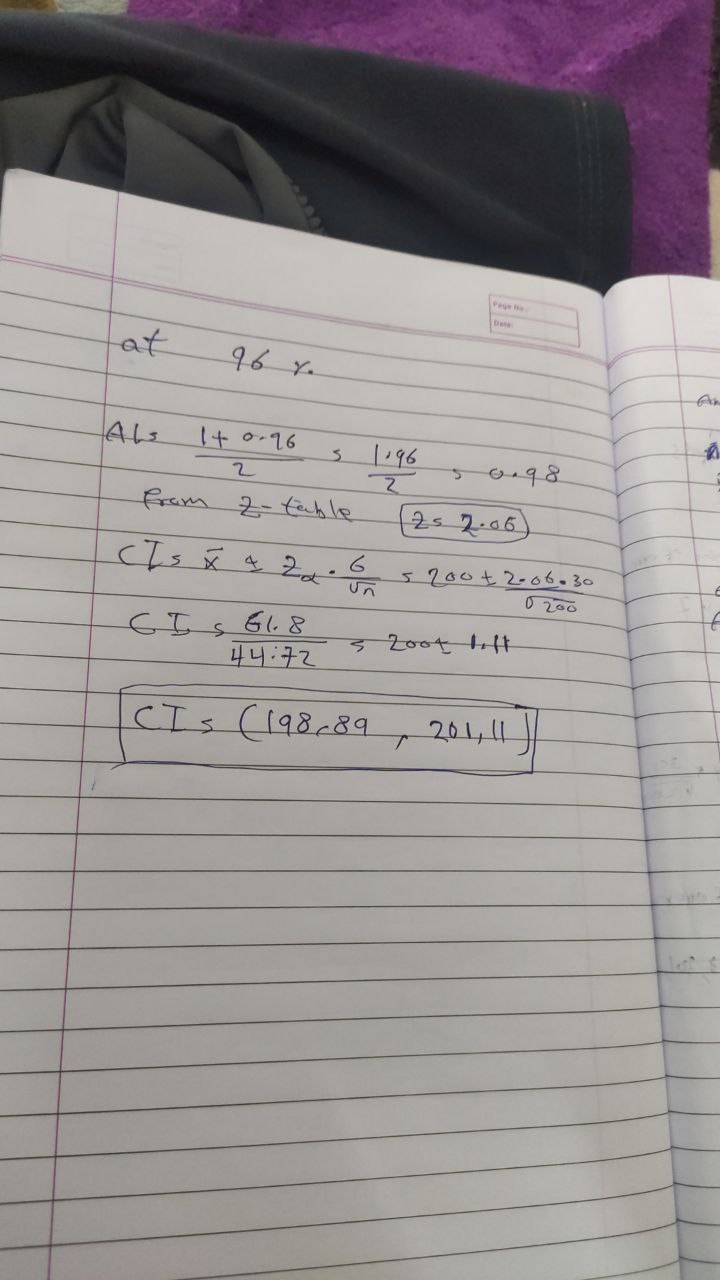 Page No.:
Date:
at 96 %.
AL = 1 + 0.96 / 2 = 1.96 / 2 = 0.98
from Z-table Z = 2.06
CI = x̄ ± Zα · σ / √n = 200 ± 2.06 · 30 / √200
CI = 61.8 / 44.72 = 200 ± 1.11
CI = (198.89 , 201.11)